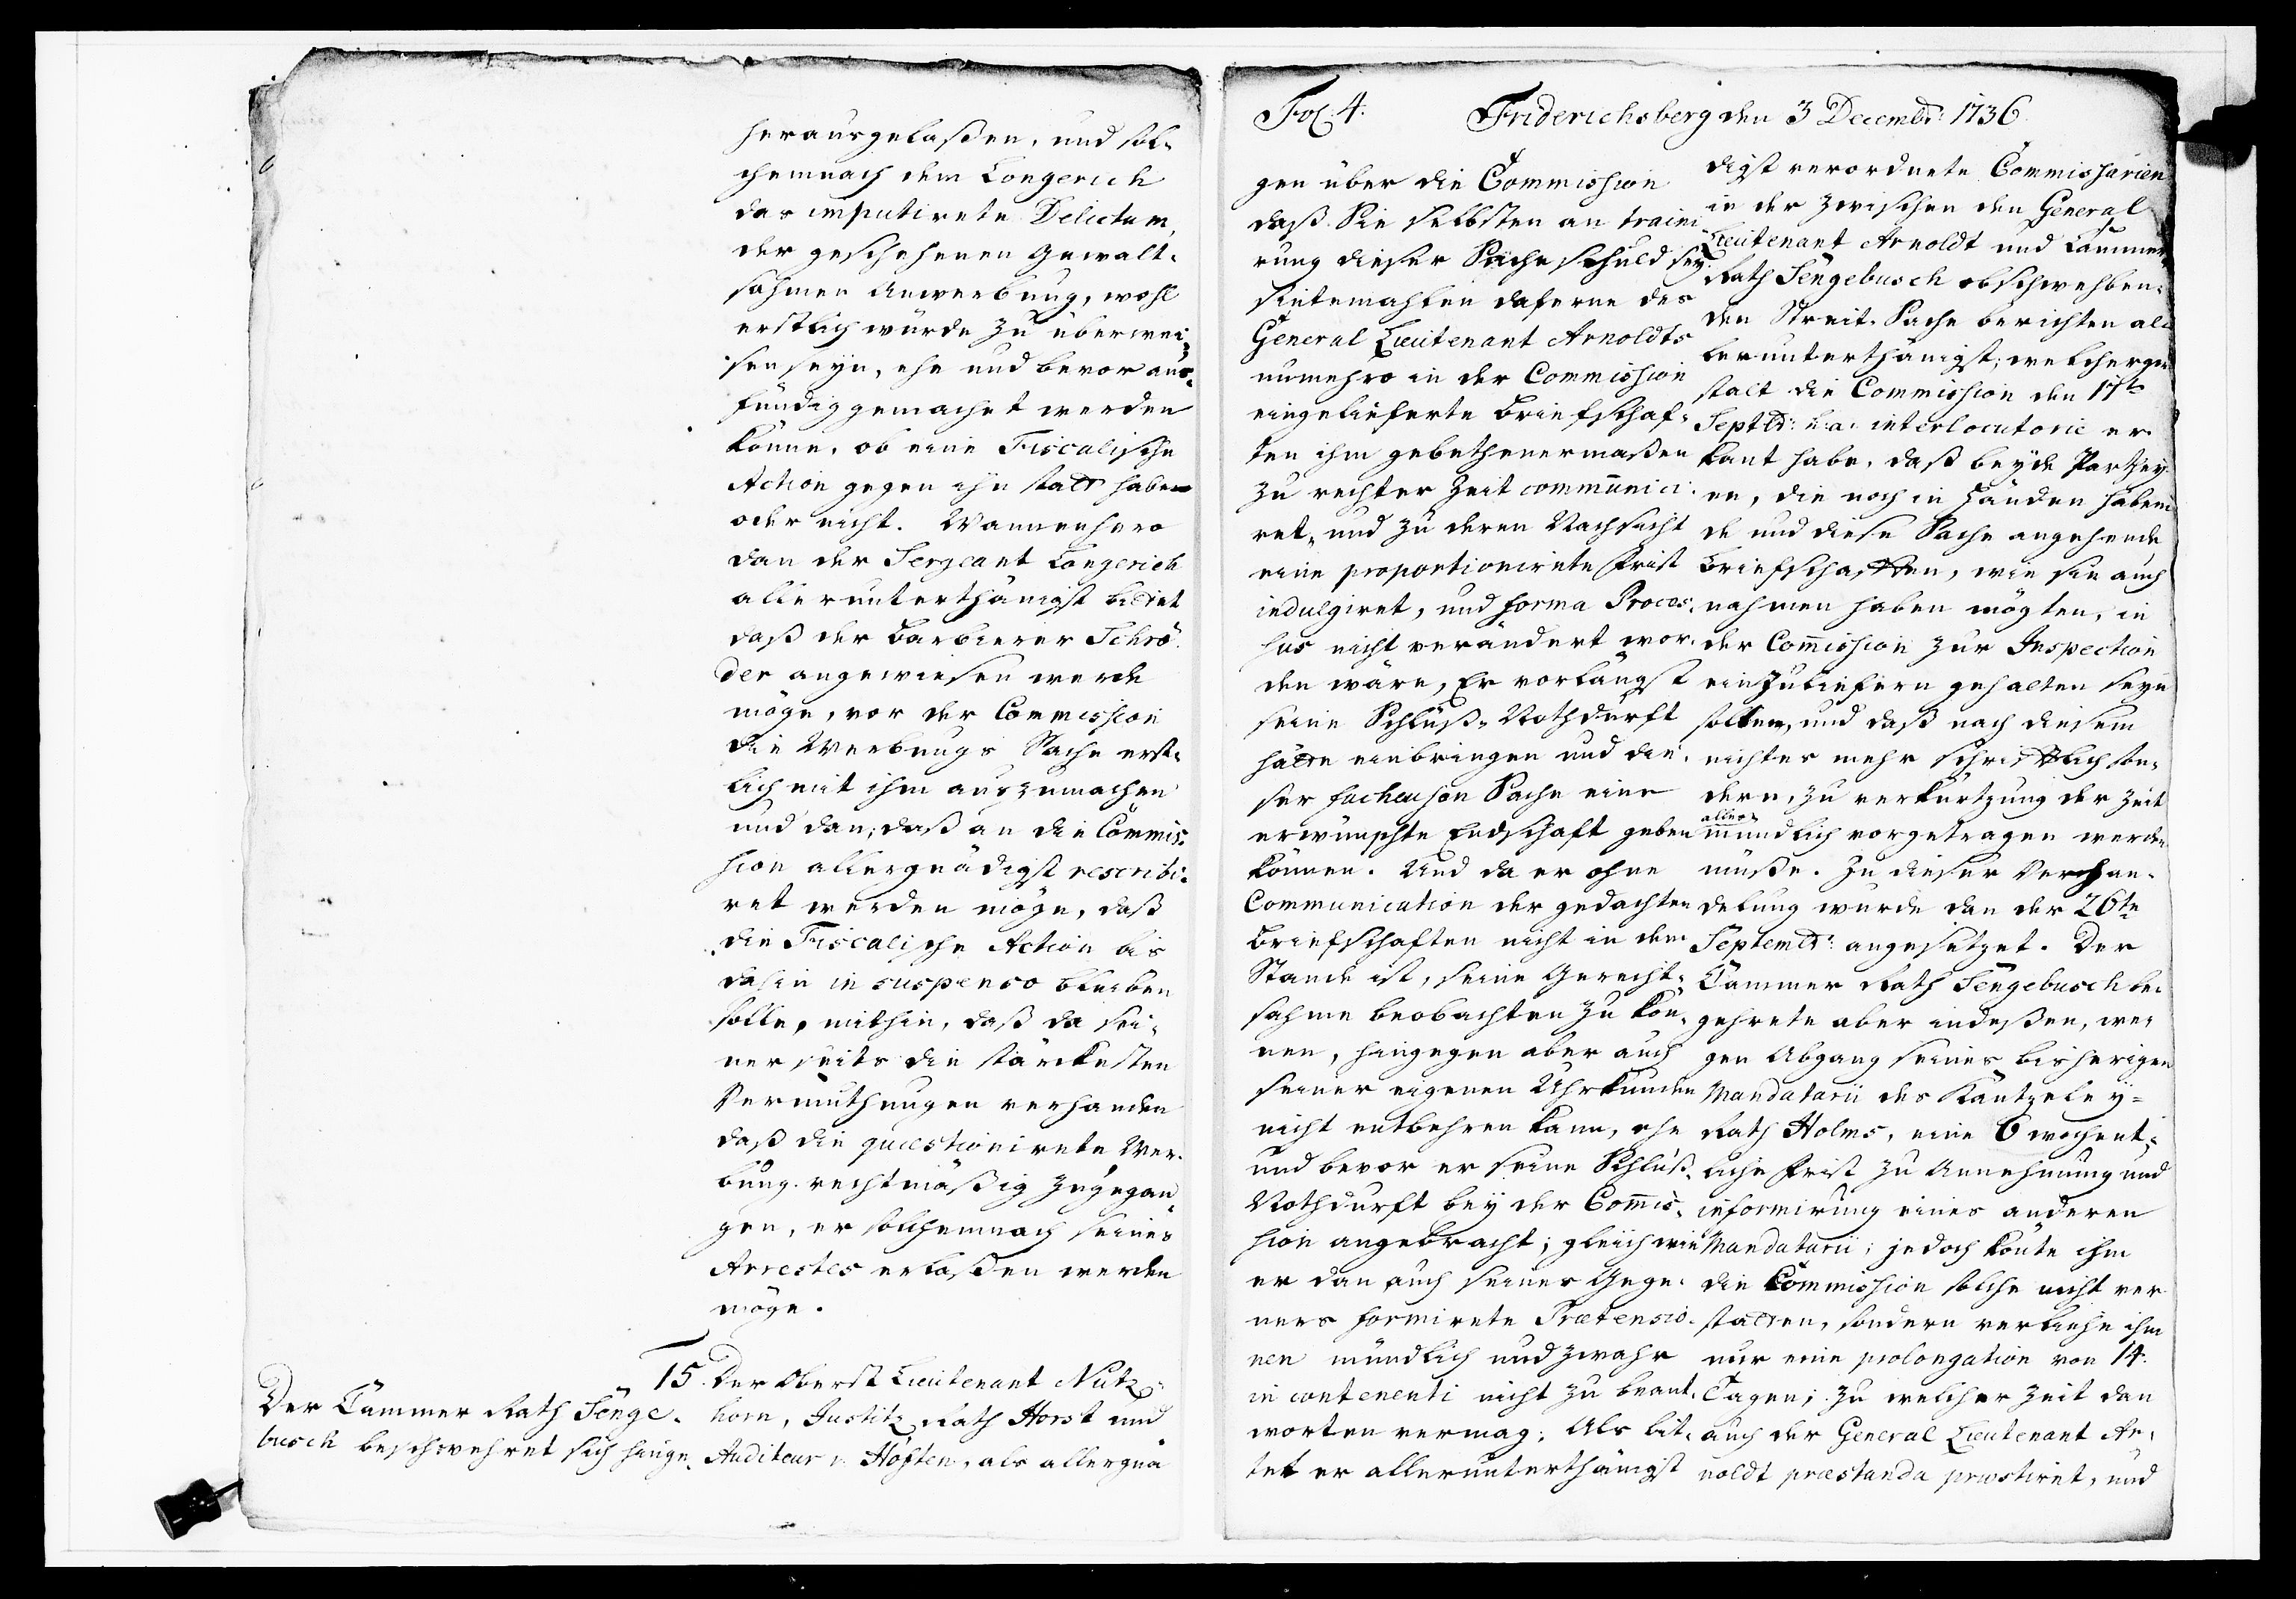 herausgelaßen, und sol-
chemnach dem Longerich
das imputirete Delictum,
der geschehenen Gewalt-
sahmen Anwerbung, wohl
erstlich würde zu überwei-
sen seyn, ehe und bevor aus-
fündig gemachet werden
könne, ob eine Fiscalische
Action gegen ihn statt haben
oder nicht. Wannenhero
dan der Sergeant Longerich
allerunterthänigst bittet
daß der Barbierer Schrö-
der angewiesen werde
möge, vor der Commission
die Werbungs Sache erst-
lich mit ihm auszumachen
und dan, daß an die Commis-
sion allergnädigst rescribi-
ret werden möge, daß
die Fiscalische Action bis
dahin in suspenso bleiben
solle, mithin, daß da sei-
nerseits die stärckesten
Vermuthungen verhanden
daß die quæstionirete Wer-
bung rechtmäßig zugegan-
gen, er solchemnach seines
Arrestes erlaßen werden
möge.
15. Der Oberst Lieutenant Nütz-
horn, Justitz Rath Horst und
Auditeur v. Höften, als allergnä
Der Cammer Rath Senge-
busch beschwehret sich hinge-
Fol: 4. Friderichsberg den 3 Decembr: 1736
gen über die Commission
daß Sie selbsten an traini-
rung dieser Sache schuld sey,
sintemahlen daferne des
General Lieutenant Arnoldts
numehro in der Commission
eingelieferte Briefschaf-
ten ihm gebethenermaßen
zu rechter Zeit communici-
ret, und zu deren Nachsicht
eine proportionirete Frist
indulgiret, und forma Proces-
sus nicht verändert wor-
den wäre, Er vorlängst
seine Schluß-Nothdurft
hätte einbringen und die-
ser facheusen Sache eine
erwünschte Endschaft geben
können. Und da er ohne
Communication der gedachten
Briefschaften nicht in dem
Stande ist, seine Gerecht-
sahme beobachten zu kön-
nen, hingegen aber auch
seiner eigenen Uhrkunden
nicht entbehren kann, ehe
und bevor er seine Schluß-
Nothdurft bey der Commis-
sion angebracht; gleichwie
er dan auch seines Gege-
ners formirete Prætensio-
nen mündlich und zwahr
in contenenti nicht zu beant-
worten vermag; Als bit-
tet er allerunterthänigst
digst verordnete Commissarien
in der zwischen den General
Lieutenant Arnoldt und Cammer
Rath Sengebusch obschwehben-
den Streit-Sache berichten al-
lerunterthänigst, welcherge-
stalt die Commission den 17te
Septbr: h: a: interlocutorie er-
kant habe, daß beyde Parthey-
en, die noch in Händen haben-
de und diese Sache angehende
Briefschafften, wie sie auch
nahmen haben mögten, in
der Commission zur Inspection
einzuliefern gehalten seyn
solten, und daß nach diesem
nichtes mehr schrifftlich son-
dern, zu verkürtzung der Zeit
alles
mündlich vorgetragen werden
müße. Zu dieser Verhan-
delung wurde dan der 26te
Septembr: angesetzet. Der
Cammer Rath Sengebusch be-
gehrete aber indeßen, we-
gen Abgang seines bisherigen
Mandatarii des Kantzeley-
Rath Holms, eine 6 wochent-
liche Frist zu Annehmung und
informirung eines anderen
Mandatarii; jedoch konte ihm
die Commission solche nicht ver-
statten, sondern verliehe ihm
nur eine prolongation von 14.
Tagen; zu welcher Zeit dan
auch der General Lieutenant Ar-
noldt præstanda præstiret, und